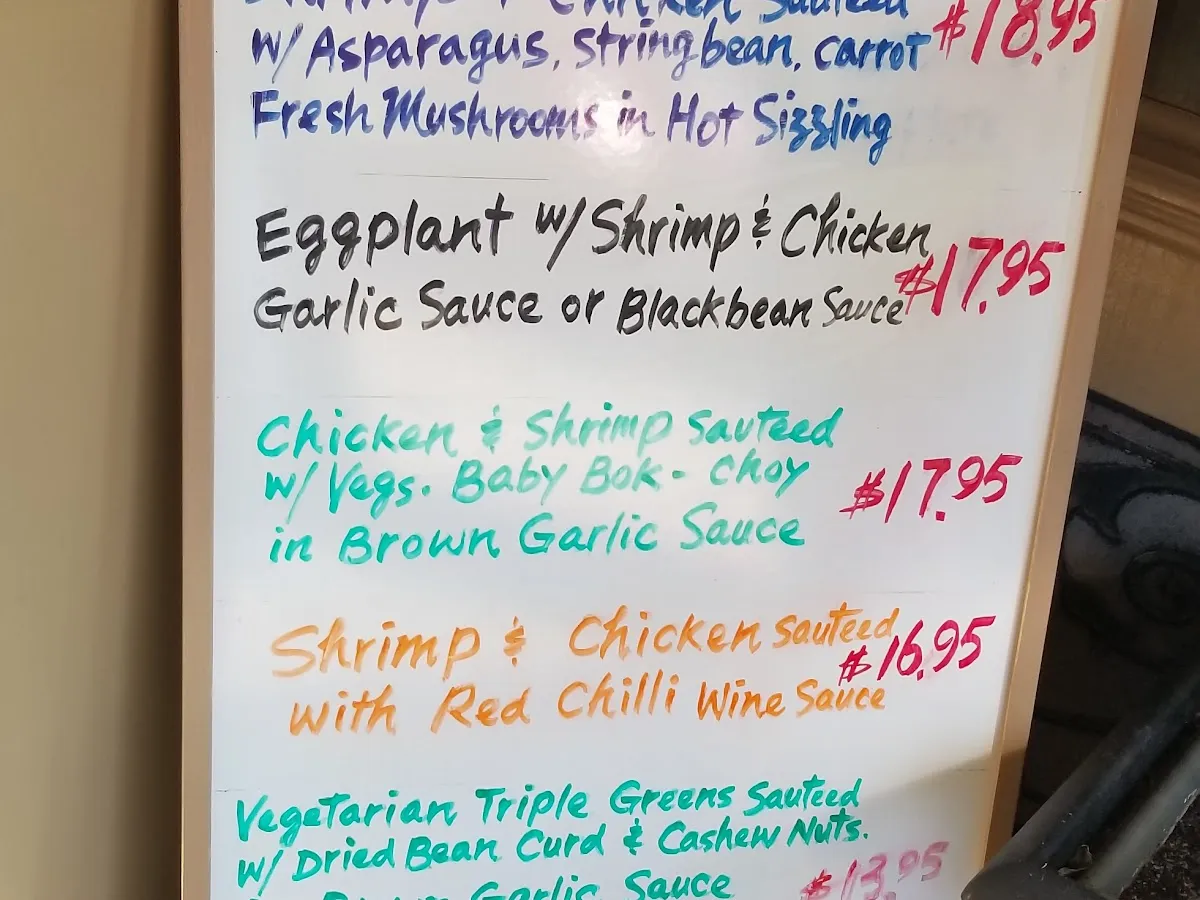 Shrimp & Chicken Sauteed
w/ Asparagus, stringbean, carrot $18.95
Fresh Mushrooms in Hot Sizzling
Eggplant w/ Shrimp & Chicken
Garlic Sauce or Blackbean Sauce $17.95
Chicken & Shrimp Sauteed
w/ Vegs. Baby Bok-Choy $17.95
in Brown Garlic Sauce
Shrimp & Chicken Sauteed
$16.95
with Red Chilli Wine Sauce
Vegetarian Triple Greens Sauteed
w/ Dried Bean Curd & Cashew Nuts.
in Brown Garlic Sauce $13.95